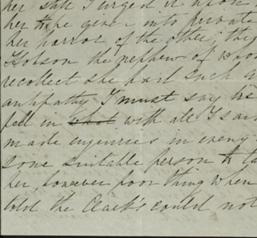 her still I urged it upon
her to give into private
her horror of the other; they
the nephew of
recollect she had such a
antipathy I must say his
fell in shot with all I said
made enquiries in every
some suitable person to ta
her, however poor thing when
told the Clark's could not